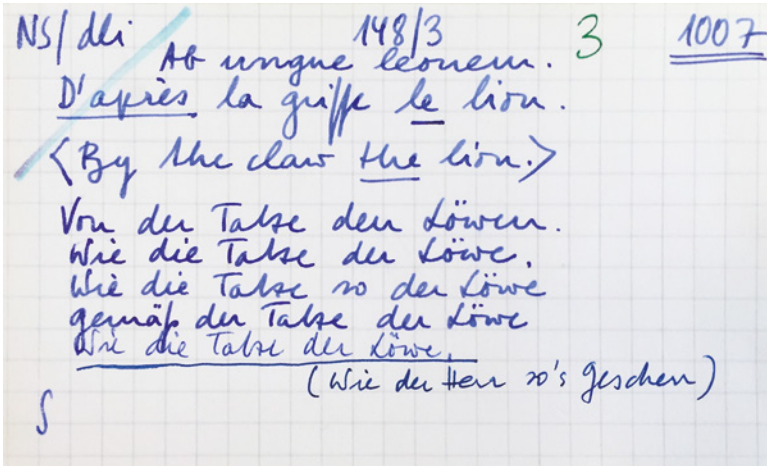 NS/dli 148/3 3 1007
Ab ungue leonem.
D'après la griffe le lion.
<By the claw the lion.>
Von der Tatze den Löwen.
Wie die Tatze der Löwe.
Wie die Tatze so der Löwe
gemäß der Tatze der Löwe
Wie die Tatze der Löwe.
(Wie der Herr so's Gescherr)
S